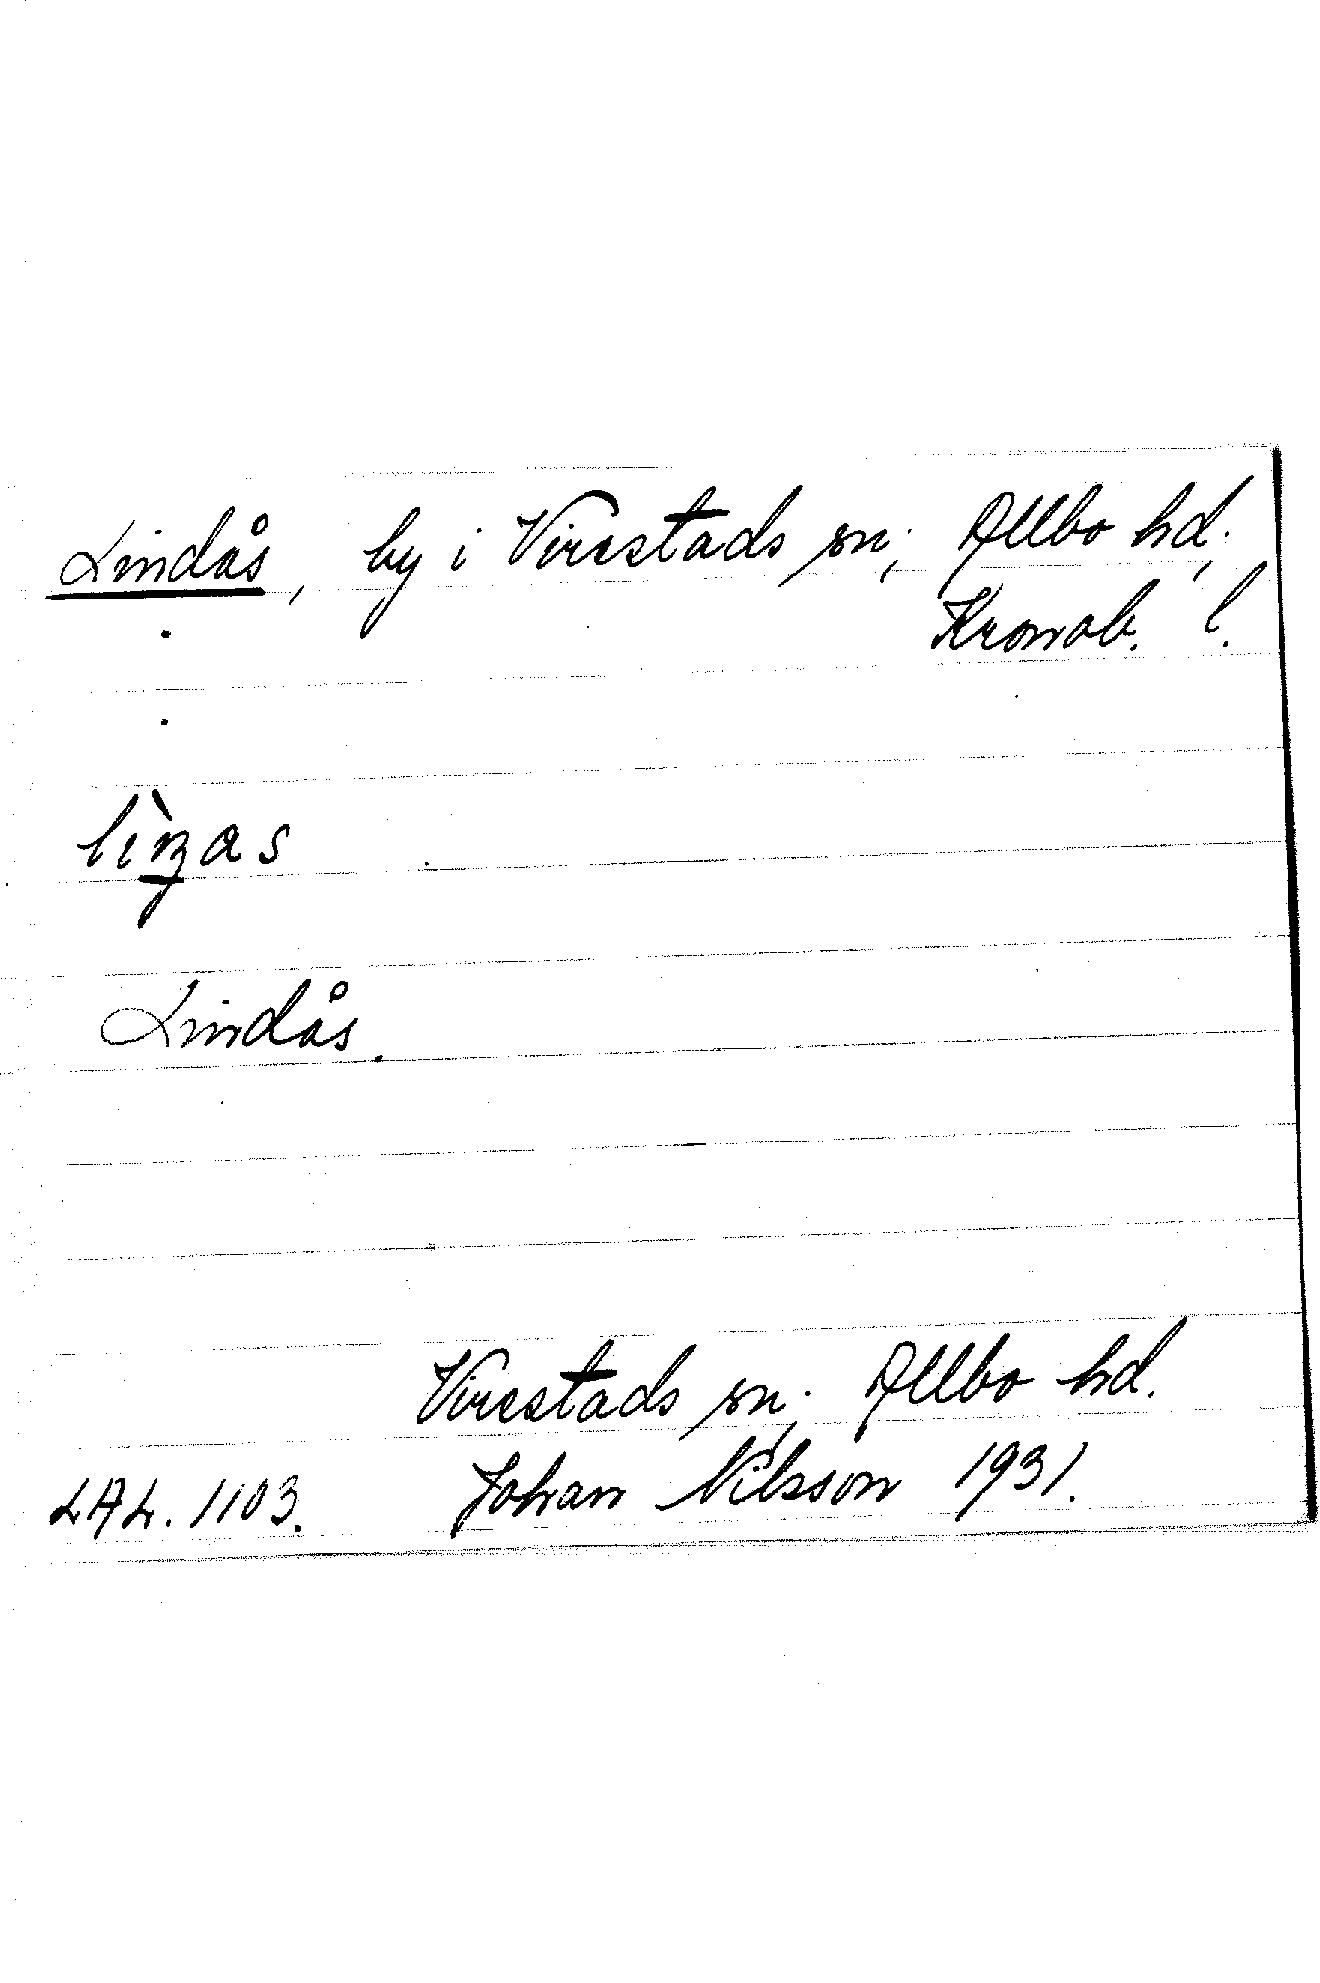 Lindås, by i Virestads sn; Allbo hd.,
Kronob. l.
Lindås.
Virestads sn; Allbo hd.
LAL. 1103. Johan Nilsson 1931.